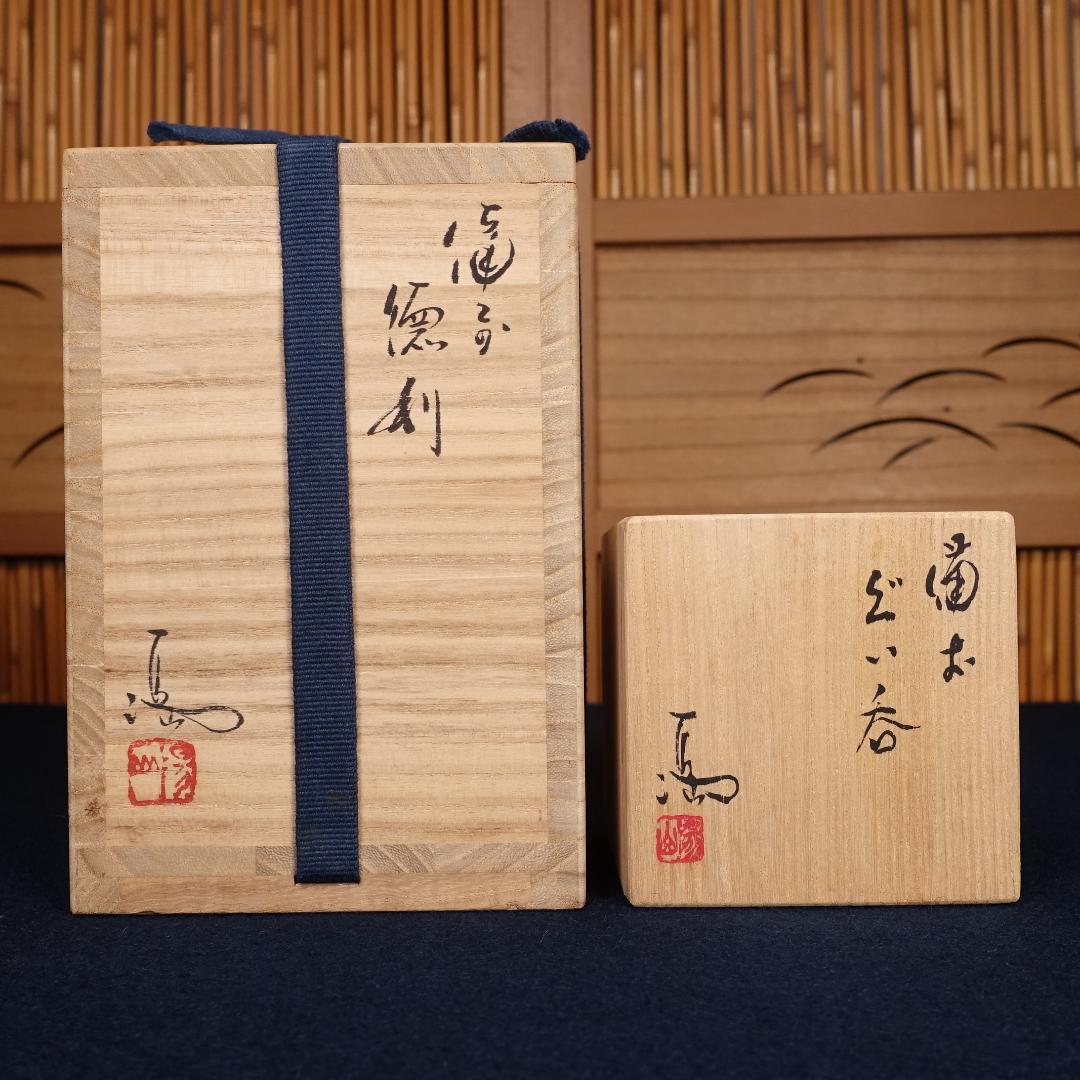 備前
徳利
備前
ぐい呑